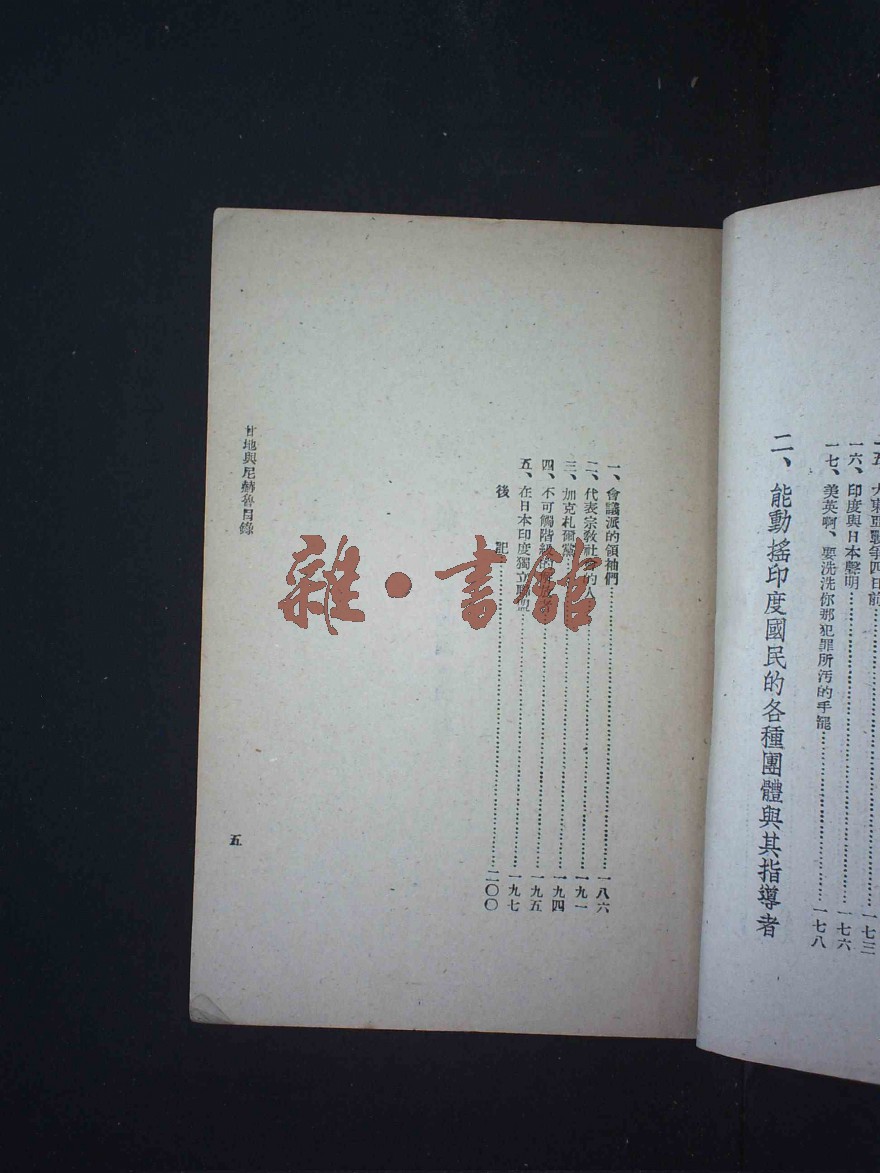 一五、大東亞戰爭四日前……一七三
一六、印度與日本聲明……一七六
一七、美英啊、要洗洗你那犯罪所汚的手罷……一七八
二、能動搖印度國民的各種團體與其指導者
一、會議派的領袖們……一八六
二、代表宗教社會的人……一九一
三、加克札爾黨……一九四
四、不可觸階級的……一九五
五、在日本印度獨立聯盟……一九七
後記……二〇〇
甘地與尼赫魯目錄
五
雜·書館